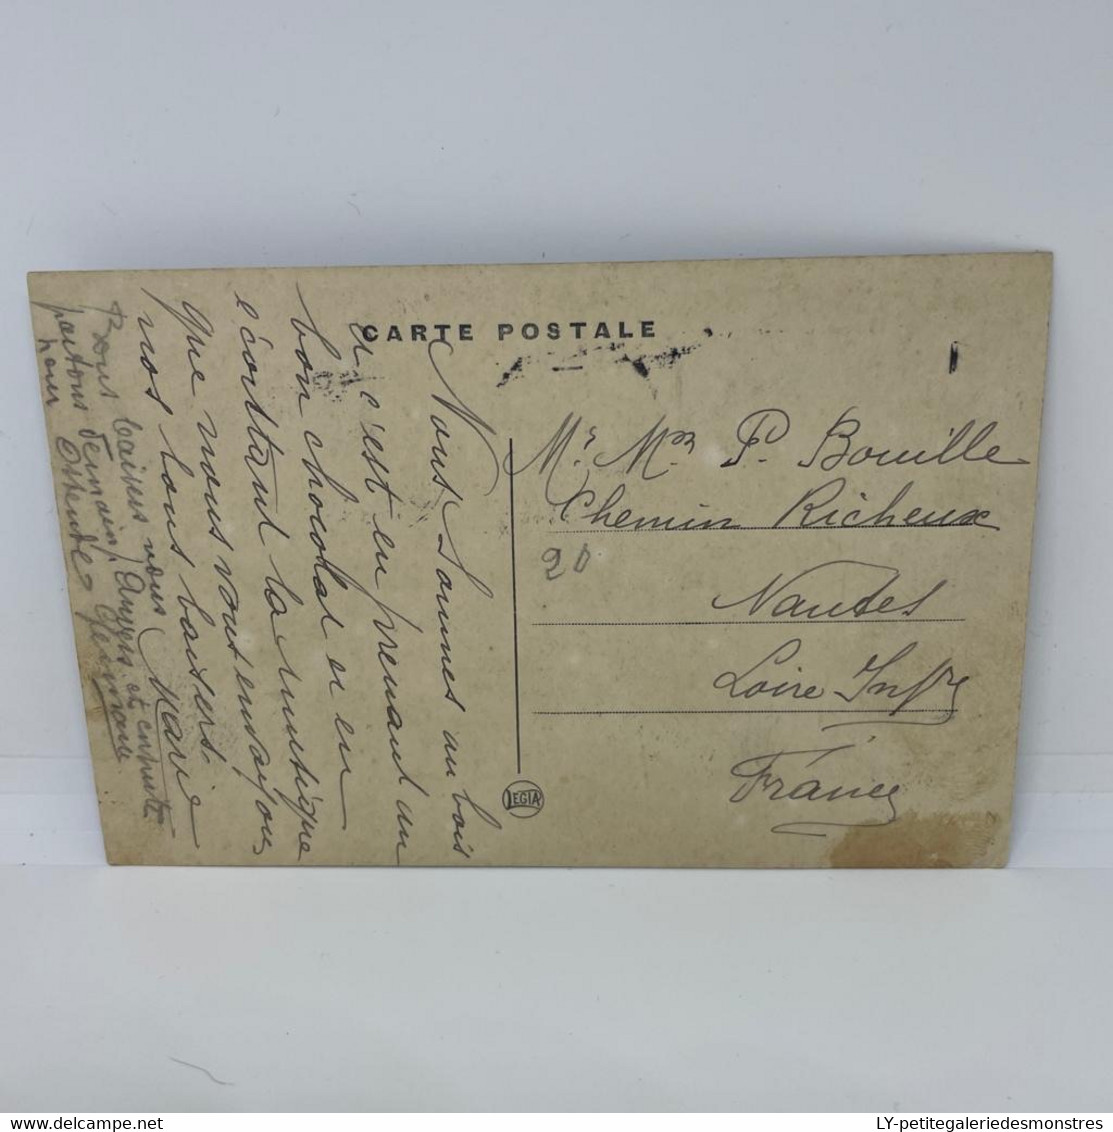 CARTE POSTALE
Nous sommes au bois
et c'est en prenant un
bon chocolat et en
écoutant la musique
que nous vous envoyons
nos bons baisers
Marie
Bons baisers nous
partons demain, Anvers et ensuite
pour Ostende
Germaine
Mr. Mme P. Bouille
Chemin Richeux
20
Nantes
Loire Infre
France
LEGIA
LY-petitegaleriedesmonstres
delcampe.net